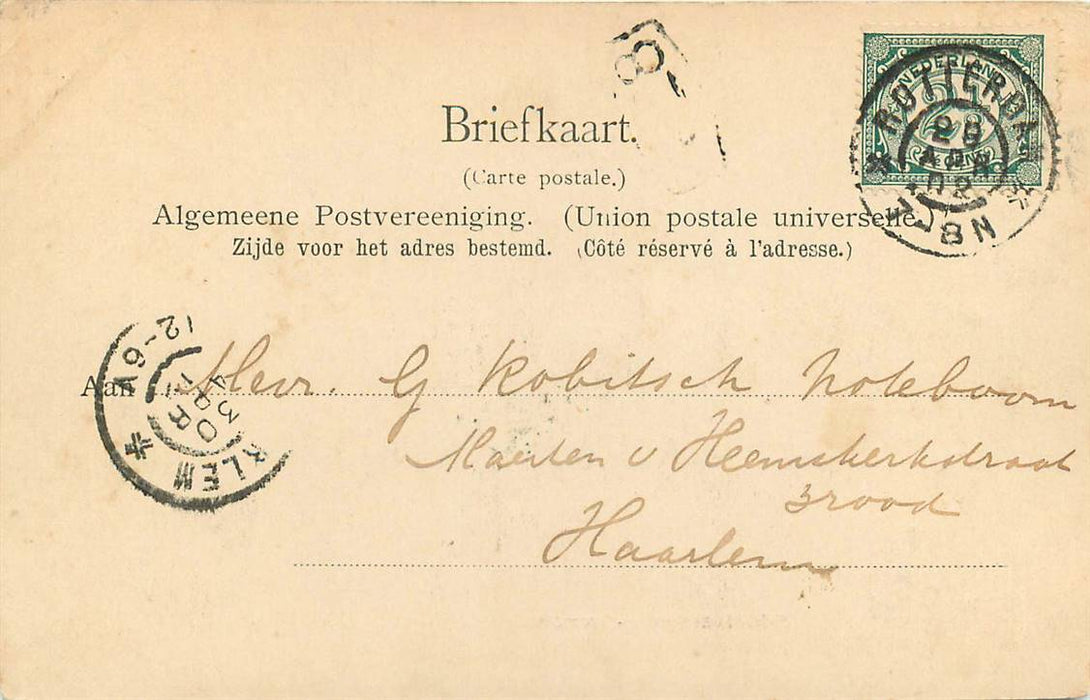 8
Briefkaart.
(Carte postale.)
Algemeene Postvereeniging. (Union postale universelle.)
Zijde voor het adres bestemd. (Côté réservé à l'adresse.)
NEDERLAND
ROTTERDAM
29
APR
02
7-8N
12-6V
30
APR
RLEM
Aan Heer. G Robitsch Noteboom
Maerten v Heemskerkstraat
3rood
Haarlem